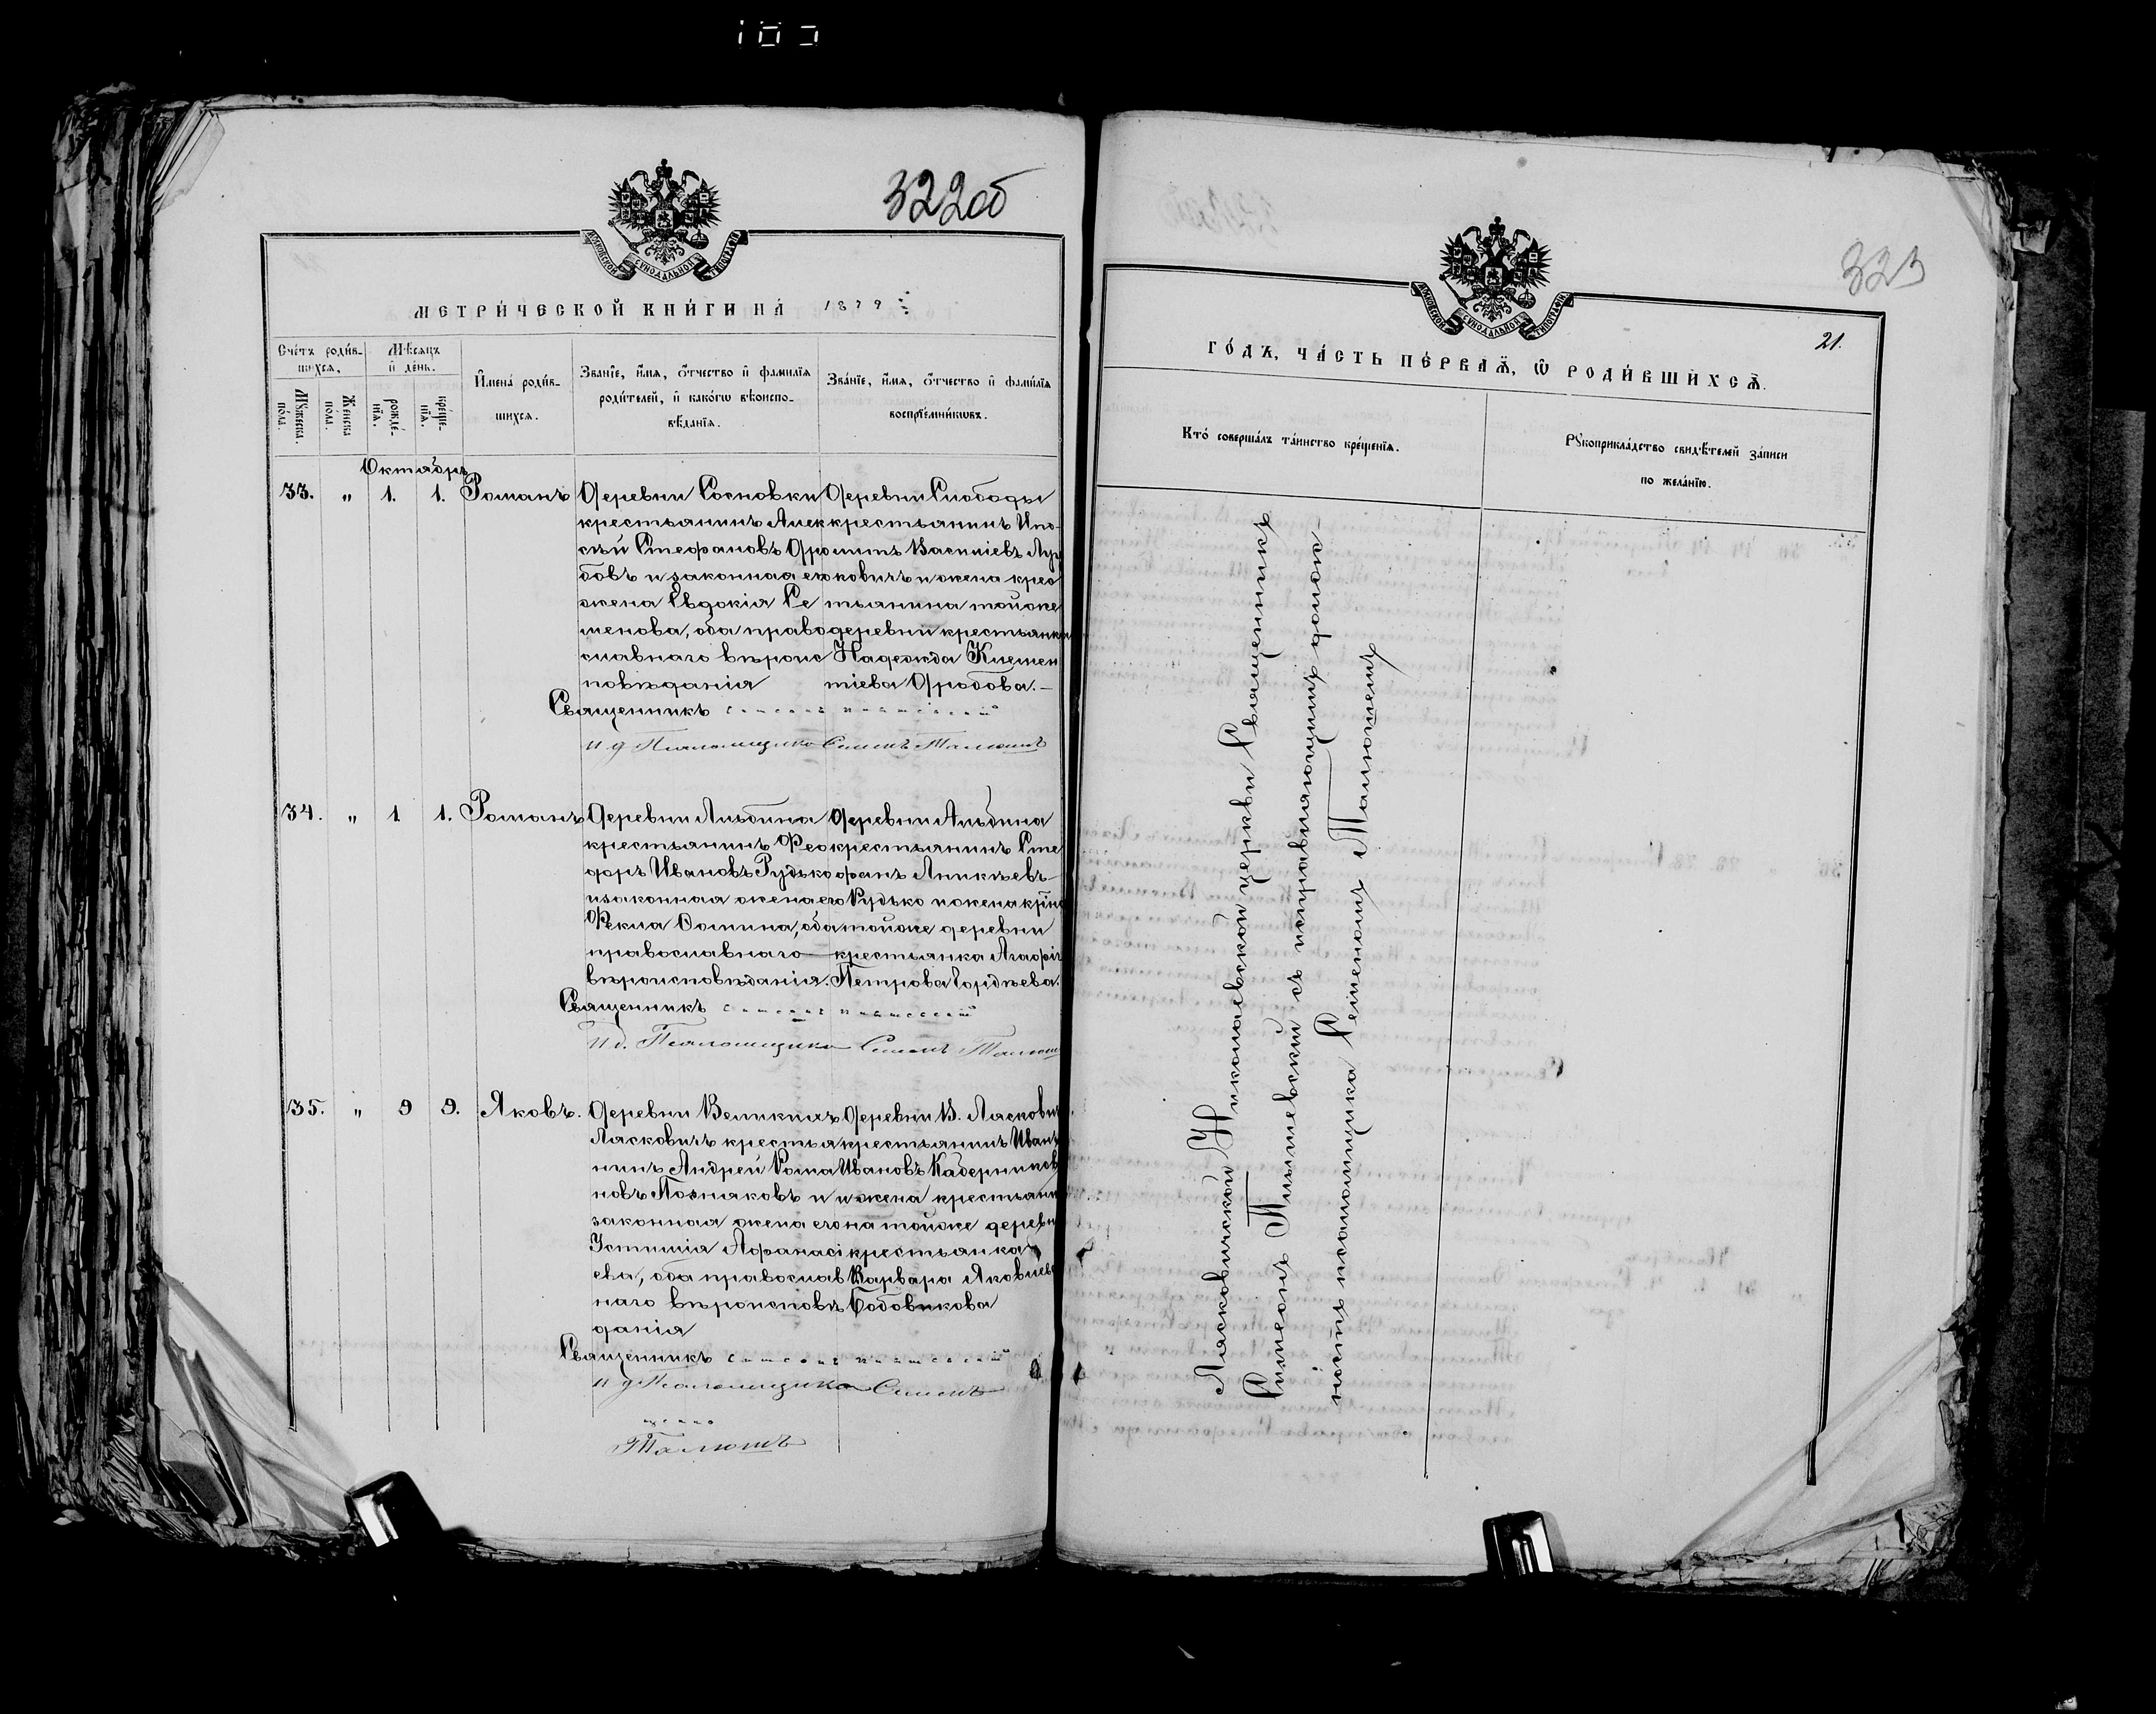 322об
МЕТРИ́ЧЕСКОЙ КНИ́ГИ НА́ 1879
Сче́тъ роди́в-
шихся.
Мѣ́сяцъ
и҆ де́нь.
Мꙋ́жеска по́ла.
Же́нска по́ла.
рожде́-
нїѧ.
креще́-
нїѧ.
И҆мена̀ роди́в-
шихся.
Зва́нїе, и҆́мѧ, ѻ҆́тчество и҆ фами́лїѧ
роди́телей, и҆ како́гѡ вѣроиспо-
вѣ́данїѧ.
Зва́нїе, и҆́мѧ, ѻ҆́тчество и҆ фами́лїѧ
воспрїе́мникѡвъ.
Октябрь
33. „ 1. 1. Романъ
Деревни Сосновки
крестьянинъ Алек
сѣй Стефановъ Дро
бовъ и законная его
жена Евдокія Се
менова, оба право
славнаго вѣроис
повѣданія
Деревни Слободы
крестьянинъ Ипо-
литъ Василіевъ
ковичъ и жена крес
тьянина тойже
деревни крестьянка
Надежда Климен
тіева Дробова.—
Священникъ
и д Псаломщика Симонъ Талюшъ
34. „ 1 1. Романъ
Деревни Альбина
крестьянинъ Фео
доръ Ивановъ Рудько
и законная жена его
Фекла Фомина, оба
православнаго
вѣроисповѣданія.
Деревни Альбина
крестьянинъ Сте
фанъ Аникіевъ
Рудько и жена
тойже деревни
крестьянка Агафія
Петрова Гордѣева.
Священникъ
И д. Псаломщика Симонъ Талюшъ
35. „ 9 9. Яковъ.
Деревни Великихъ
Ласковичъ крестья
нинъ Андрей Рома
новъ Позняковъ и
законная жена его
Устинія Афанасі
ева, оба православ
наго вѣроисповѣ
данія
Деревни В. Ласкович
крестьянинъ Иванъ
Ивановъ
и жена крестьяни
на тойже деревн
крестьянка
Варвара Яковлева
Бобовикова
Священникъ
и д Псаломщика Симонъ
Талюшъ
323
21.
ГО́ДЪ, ЧА́СТЬ ПЕ́РВАѦ, Ѡ҆ РОДИ́ВШИХСѦ.
Кто́ соверша́лъ та́инство креще́нїѧ.
Рꙋкоприкла́дство свидѣ́телей за́писи
по жела́нїю.
Ласковичской Николаевской церкви Священникъ
Симеонъ съ исправляющимъ долж-
ность псаломщика Семеномъ Талюшемъ